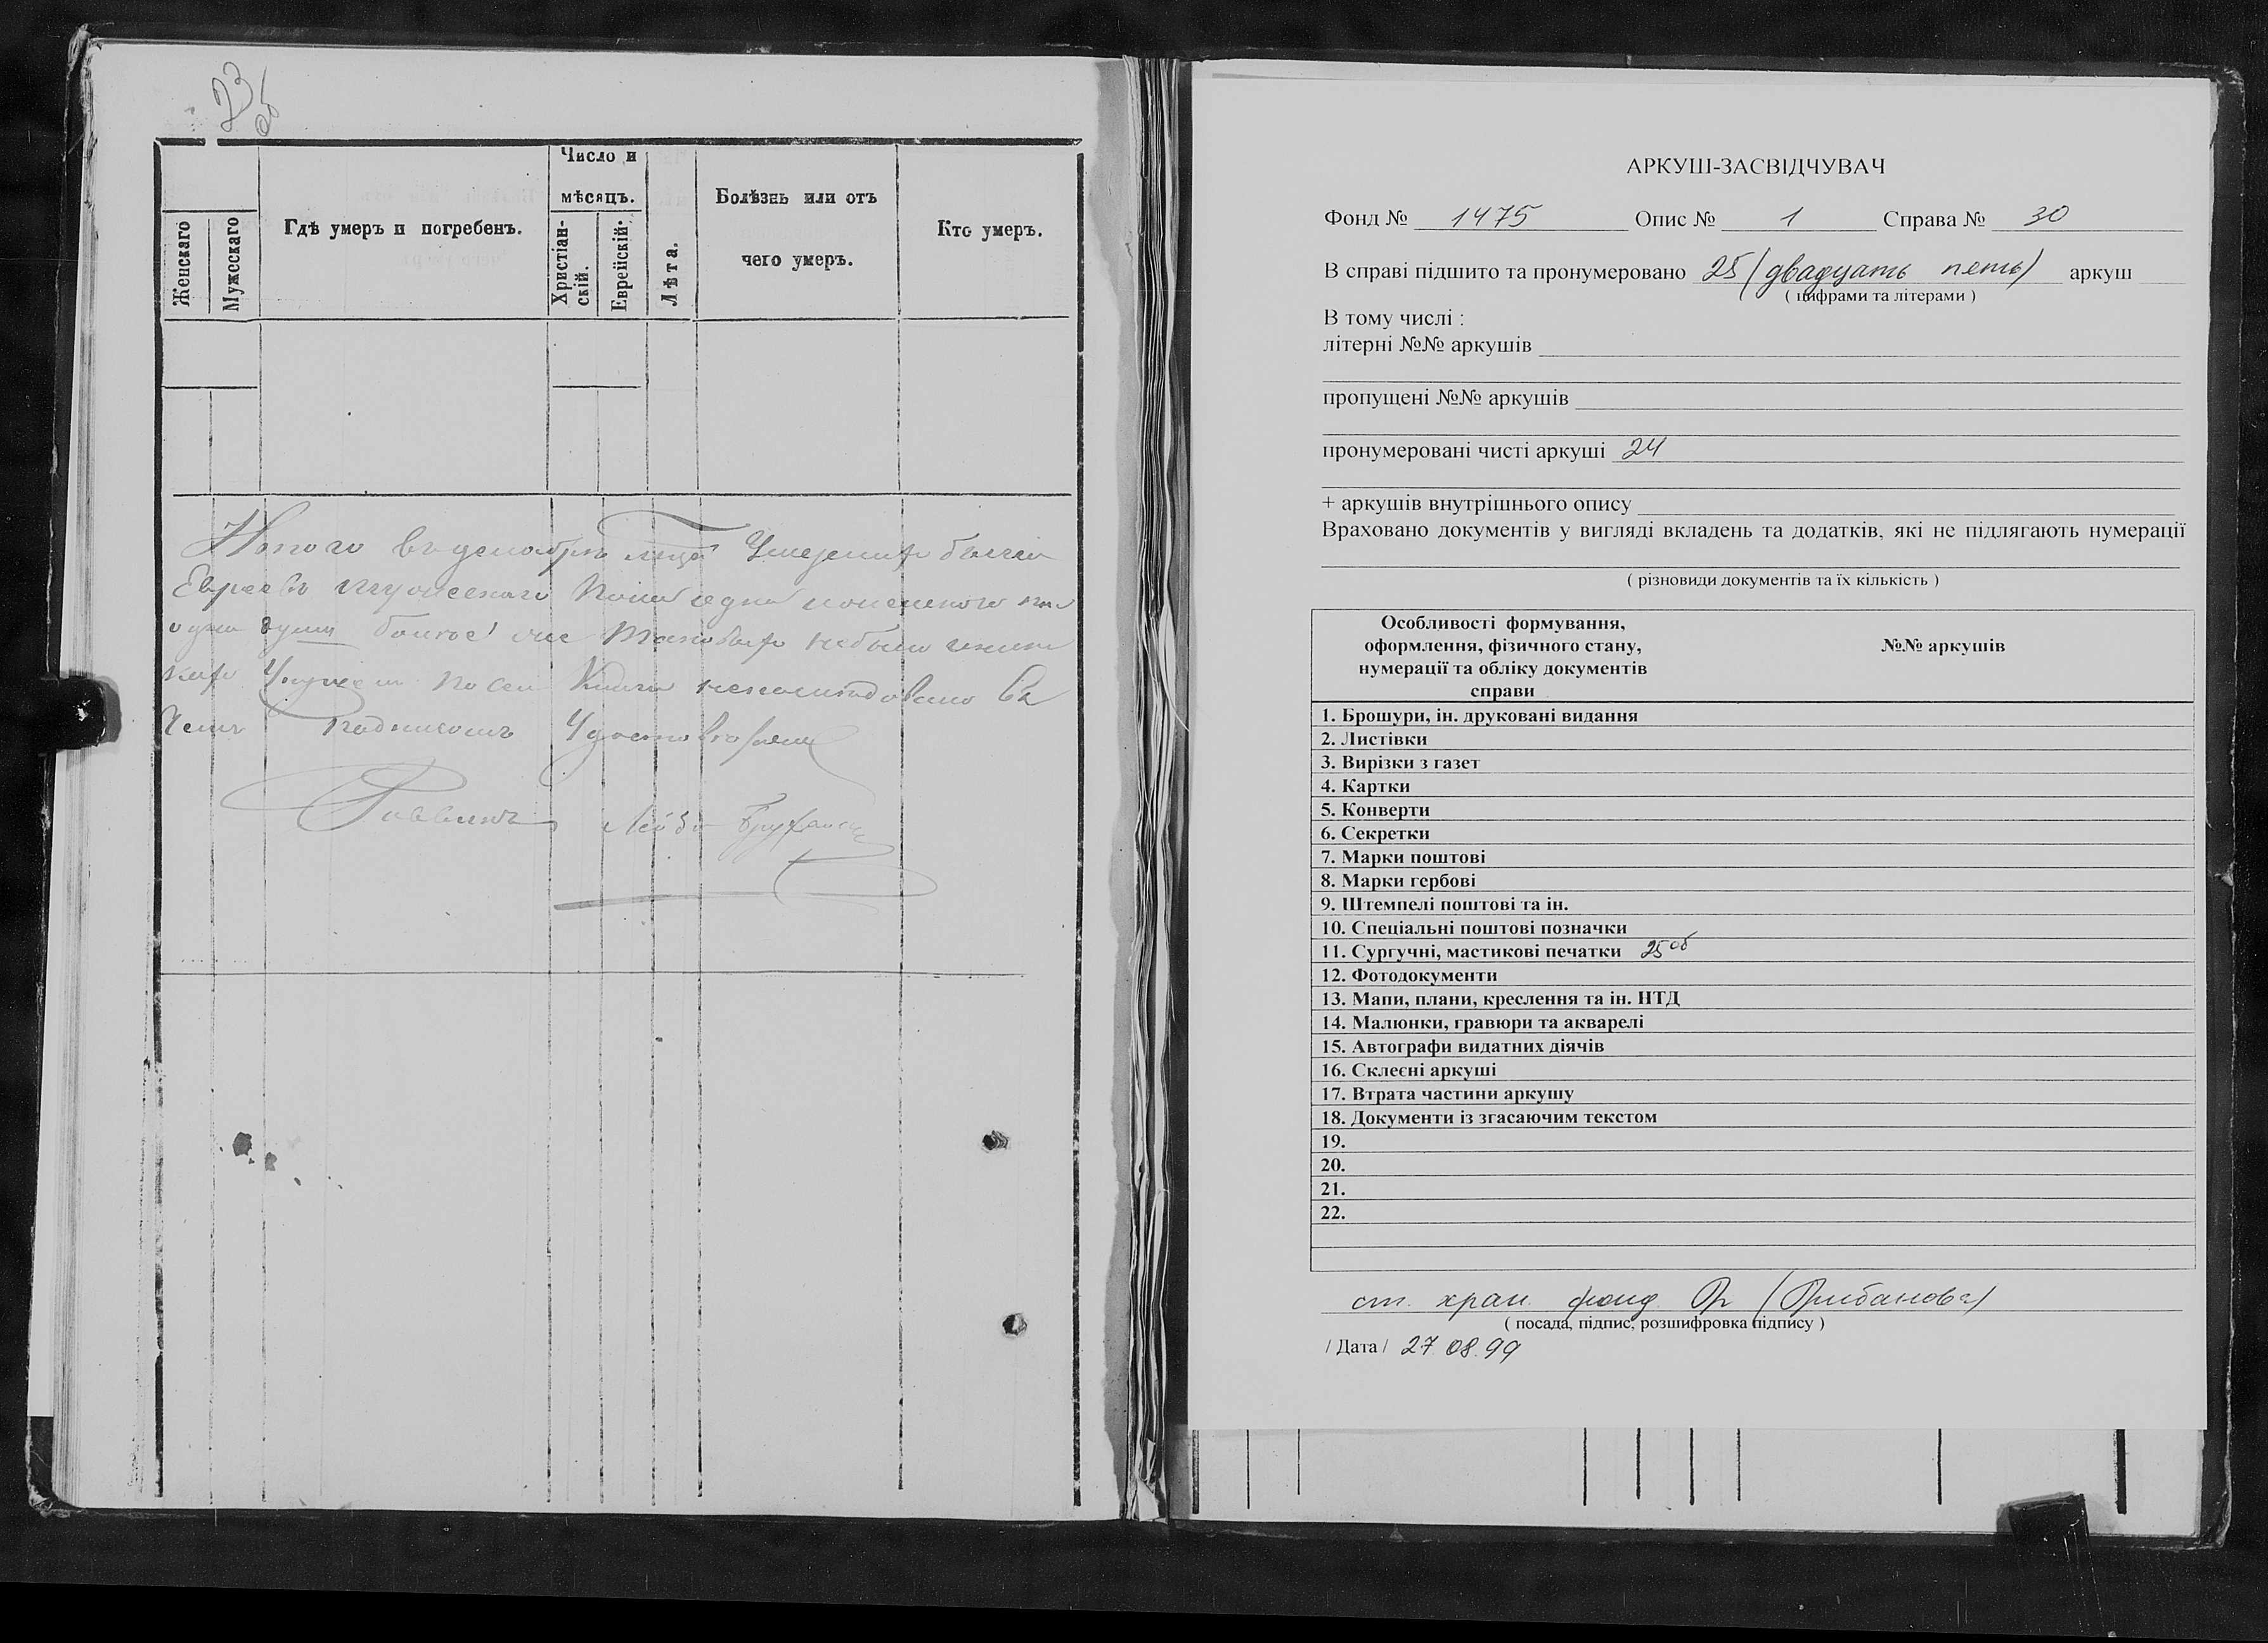 23
об
Женскаго
Мужескаго
Гдѣ умеръ и погребенъ.
Число и
мѣсяцъ.
Христіан-
скій.
Еврейскій.
Лѣта.
Болѣзнь или отъ
чего умеръ.
Кто умеръ.
Итого въ декабрѣ
Евреевъ мужескаго одна женскаго
одна душа больше
По сей Книги въ
Чемъ подписомъ Удостовѣряю
Раввинъ Лейба
АРКУШ-ЗАСВІДЧУВАЧ
Фонд № 1475 Опис № 1 Справа № 30
В справі підшито та пронумеровано 25 (двадцать пять) аркуш
( цифрами та літерами )
В тому числі :
літерні №№ аркушів
пропущені №№ аркушів
пронумеровані чисті аркуші 24
+ аркушів внутрішнього опису
Враховано документів у вигляді вкладень та додатків, які не підлягають нумерації
( різновиди документів та їх кількість )
Особливості формування,
оформлення, фізичного стану,
нумерації та обліку документів
справи
№№ аркушів
1. Брошури, ін. друковані видання
2. Листівки
3. Вирізки з газет
4. Картки
5. Конверти
6. Секретки
7. Марки поштові
8. Марки гербові
9. Штемпелі поштові та ін.
10. Спеціальні поштові позначки
11. Сургучні, мастикові печатки 25об
12. Фотодокументи
13. Мапи, плани, креслення та ін. НТД
14. Малюнки, гравюри та акварелі
15. Автографи видатних діячів
16. Склеєні аркуші
17. Втрата частини аркушу
18. Документи із згасаючим текстом
19.
20.
21.
22.
ст. хран. фонд.
( посада, підпис, розшифровка підпису )
/ Дата / 27.08.99